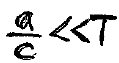 a/c << T